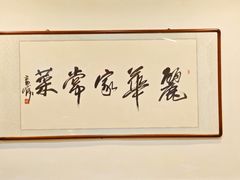 麗華家常菜